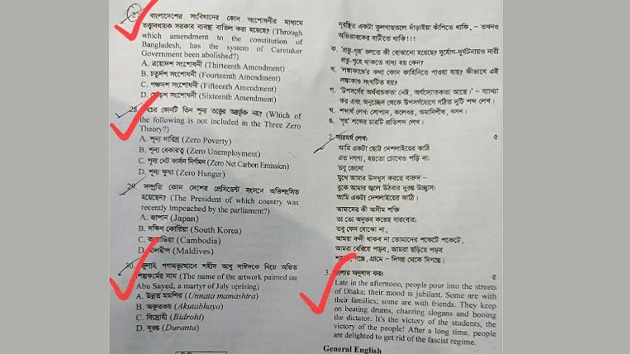 বাংলাদেশের সংবিধানের কোন সংশোধনীর মাধ্যমে
তত্ত্বাবধায়ক সরকার ব্যবস্থা বাতিল করা হয়েছে? (Through
which amendment to the constitution of
Bangladesh, has the system of Caretaker
Government been abolished?)
A. ত্রয়োদশ সংশোধনী (Thirteenth Amendment)
B. চতুর্দশ সংশোধনী (Fourteenth Amendment)
C. পঞ্চদশ সংশোধনী (Fifteenth Amendment)
D. ষোড়শ সংশোধনী (Sixteenth Amendment)
28. নিচের কোনটি তিন শূন্য তত্ত্বের অন্তর্ভুক্ত নয়? (Which of
the following is not included in the Three Zero
Theory?)
A. শূন্য দারিদ্র (Zero Poverty)
B. শূন্য বেকারত্ব (Zero Unemployment)
C. শূন্য নেট কার্বন নির্গমন (Zero Net Carbon Emission)
D. শূন্য ক্ষুধা (Zero Hunger)
29. সম্প্রতি কোন দেশের প্রেসিডেন্ট সংসদে অভিশংসিত
হয়েছেন? (The President of which country was
recently impeached by the parliament?)
A. জাপান (Japan)
B. দক্ষিণ কোরিয়া (South Korea)
C. কম্বোডিয়া (Cambodia)
D. মালদ্বীপ (Maldives)
30. জুলাই গণঅভ্যুত্থানে শহীদ আবু সাঈদকে নিয়ে অঙ্কিত
শিল্পকর্মের নাম (The name of the artwork painted on
Abu Sayed, a martyr of July uprising)
A. উন্নত মমশির (Unnata mamashira)
B. অকুতোভয় (Akutobhaya)
C. বিদ্রোহী (Bidrohi)
D. দুরন্ত (Duranta)
দূরস্থিত একটা কূলগাছতলে দাঁড়াইয়া কাঁপিতে থাকি, – তখনও
অভিভাবকের বাটীতে থাকি!!!
ক. 'রাজু-গৃহ' বলতে কী বোঝানো হয়েছে? দুর্যোগ-দুর্ঘটনায়ও নারী
গৃহে থাকতে বাধ্য হয় কেন?
খ. 'লঙ্কাকাণ্ডে'র কথা কোন কাহিনিতে পাওয়া যায়? কীভাবে এই
লঙ্কাকাণ্ড সংঘটিত হয়?
গ. 'উপসর্গের অর্থবাচকতা নেই, অর্থদ্যোতকতা আছে।' – ব্যাখ্যা
কর এবং অনুচ্ছেদ থেকে উপসর্গযোগে গঠিত দুটি শব্দ লেখ।
ঘ. শব্দার্থ লেখ: সোপান, কলেবর, অমানিশীথ, বসন।
ঙ. 'গৃহ' শব্দের চারটি প্রতিশব্দ লেখ।
2. সারমর্ম লেখ: ৫
আমি একটা ছোট্ট দেশলাইয়ের কাঠি
এত নগণ্য, হয়তো চোখেও পড়ি না:
তবু জেনো
মুখে আমার উসখুস করছে বারুদ –
বুকে আমার জ্বলে উঠবার দুরন্ত উচ্ছ্বাস:
আমি একটা দেশলাইয়ের কাঠি।
আমাদের কী অসীম শক্তি
তা তো অনুভব করেছ বারংবার;
তবু কেন বোঝো না,
আমরা বন্দী থাকব না তোমাদের পকেটে পকেটে,
আমরা বেরিয়ে পড়ব, আমরা ছড়িয়ে পড়ব
শহরে, গঞ্জে, গ্রামে – দিগন্ত থেকে দিগন্তে।
3. বাংলায় অনুবাদ কর: ৫
Late in the afternoon, people pour into the streets
of Dhaka; their mood is jubilant. Some are with
their families; some are with friends. They keep
on beating drums, chanting slogans and booing
the dictator. It's the victory of the students, the
victory of the people! After a long time, people
are delighted to get rid of the fascist regime.
General English